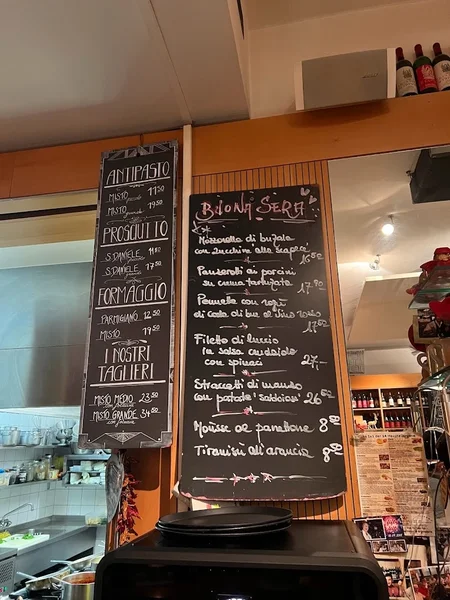 ANTIPASTO
MISTO piccolo 11.50
MISTO grande 19.50
PROSCIUTTO
S. DANIELE piccolo 11.80
S. DANIELE grande 17.50
FORMAGGIO
PARMIGIANO 12.50
MISTO 19.50
I NOSTRI
TAGLIERI
MISTO MEDIO 23.50
MISTO GRANDE 34.50
BUONA SERA
Mozzarella di bufala
con zucchine alla scapece 16.50
Panserotti ai porcini
su crema tartufata 17.90
Pannelle con ragù
di coda di bue al vino rosso
17.50
Fileto di luccio
in salsa
con spinaci 27,-
Straccetti di manzo
con patate 26.50
Mousse al panettone 8.00
Tiramisù all'arancia 8.00